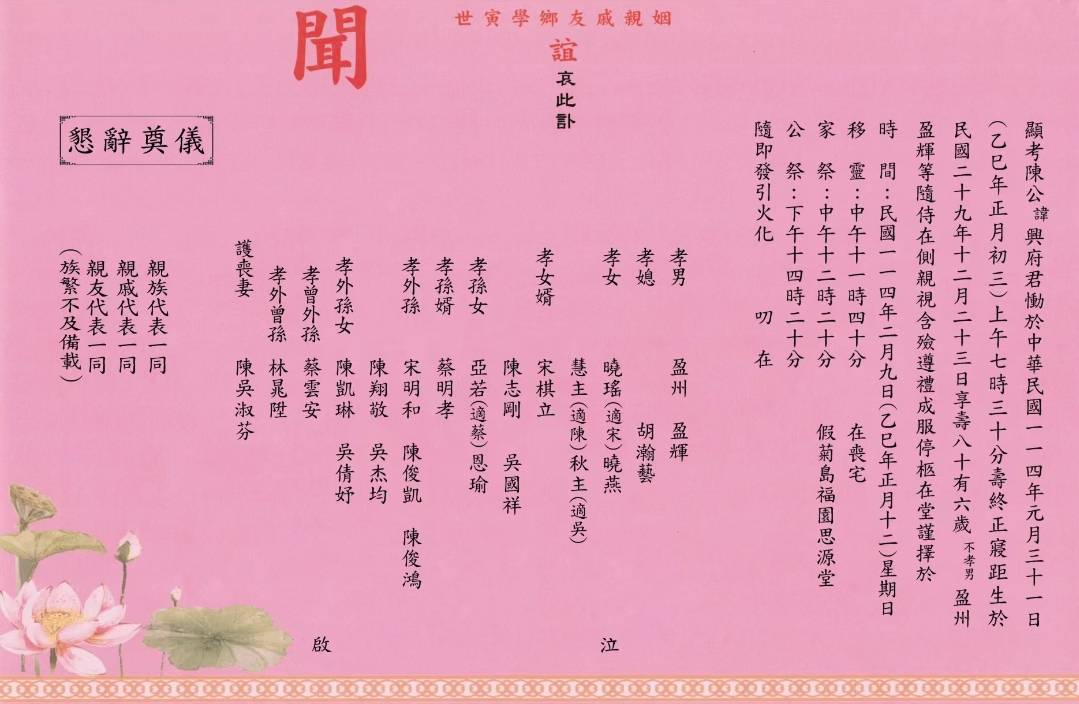 顯考陳公諱興府君慟於中華民國一一四年元月三十一日
(乙巳年正月初三)上午七時三十分壽終正寢距生於
民國二十九年十二月二十三日享壽八十有六歲 不孝男 盈州
盈輝等隨侍在側親視含殮遵禮成服停柩在堂謹擇於
時 間：民國一一四年二月九日(乙巳年正月十二)星期日
移 靈：中午十一時四十分 在喪宅
家 祭：中午十二時二十分 假菊島福園思源堂
公 祭：下午十四時二十分
隨即發引火化 叨 在
姻親戚友鄉學寅世
誼
哀此訃
聞
孝男 盈州 盈輝
孝媳 胡瀚藝
孝女 曉瑤(適宋)曉燕
慧主(適陳)秋主(適吳)
孝女婿 宋棋立
陳志剛 吳國祥
孝孫女 亞若(適蔡)恩瑜
孝孫婿 蔡明孝
孝外孫 宋明和 陳俊凱 陳俊鴻
陳翔敬 吳杰均
孝外孫女 陳凱琳 吳倩妤
孝曾外孫 蔡雲安
孝外曾孫 林晁陞
護喪妻 陳吳淑芬
泣
啟
親族代表一同
親戚代表一同
親友代表一同
(族繁不及備載)
懇辭奠儀